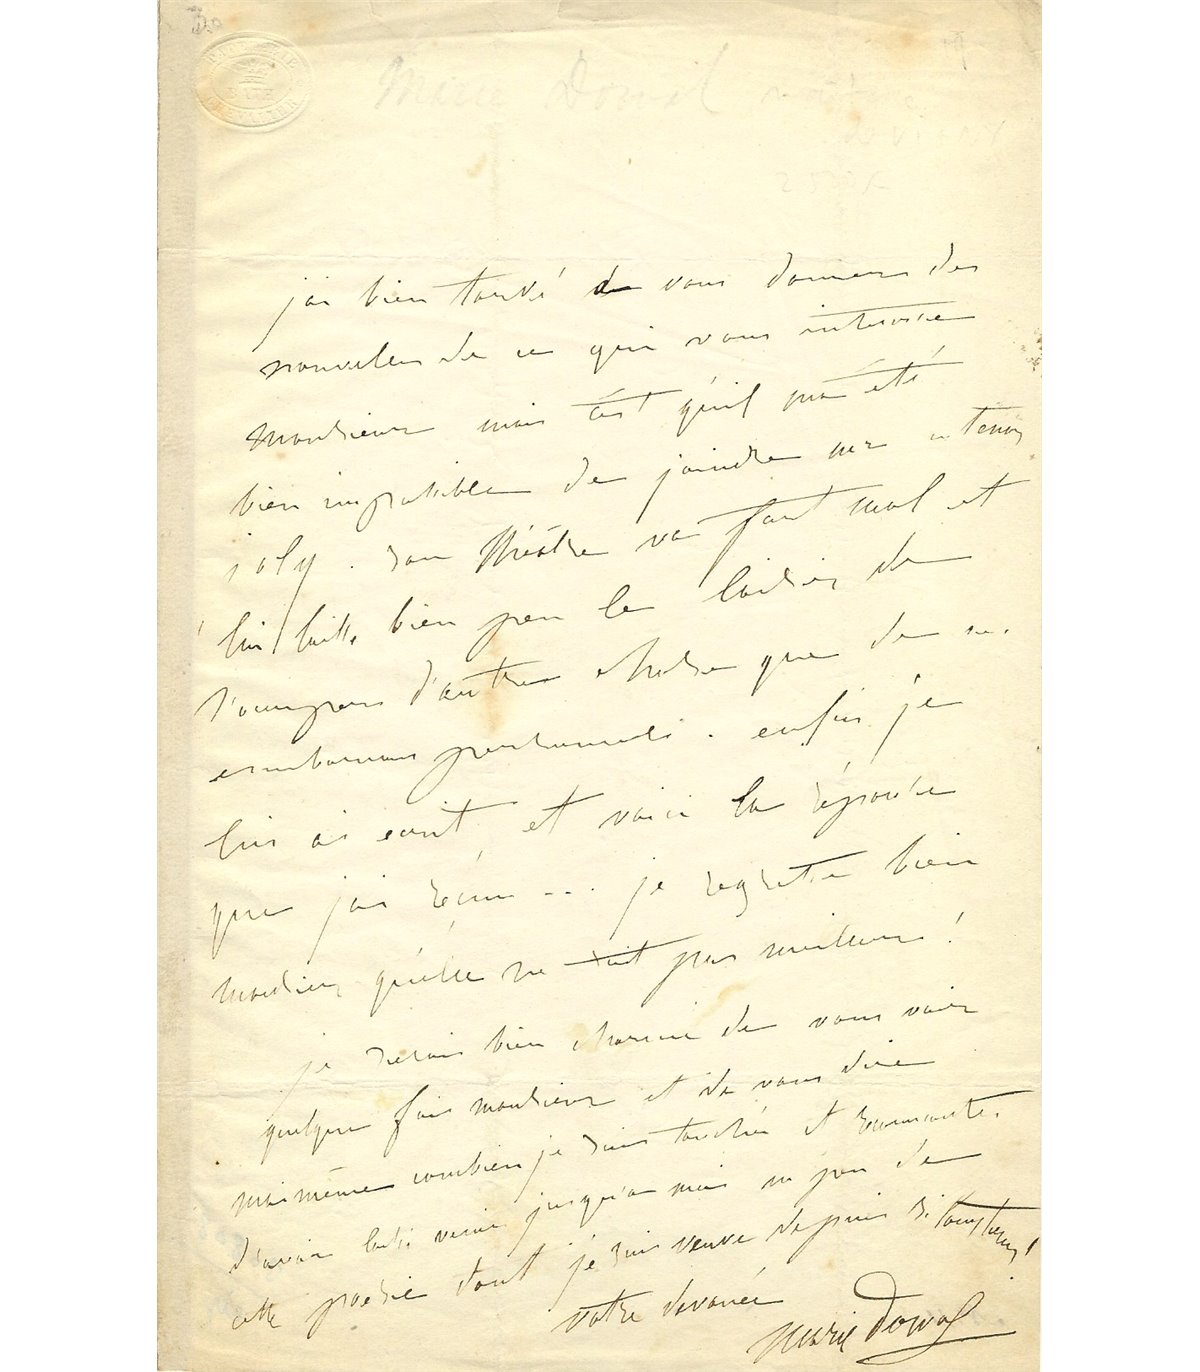 Marie Dorval
jai bien tardé de vous donner des
nouvelles de ce qui vous intéresse
monsieur mais c'est qu'il m'a été
bien impossible de joindre mr antenor
joly. son théâtre va fort mal et
lui laisse bien peu le loisir de
s'occuper d'autre chose que de ses
embarras personnels. enfin je
lui ai écrit et voici la réponse
que jai reçue ... je regrette bien
monsieur qu'elle ne soit pas meilleure!
je serais bien charmée de vous voir
quelque fois monsieur et de vous dire
moi même combien je suis touchée et reconnaissante
d'avoir laissé venir jusqu'à moi un peu de
cette poésie dont je suis veuve depuis si longtemps!
votre dévouée
marie dorval